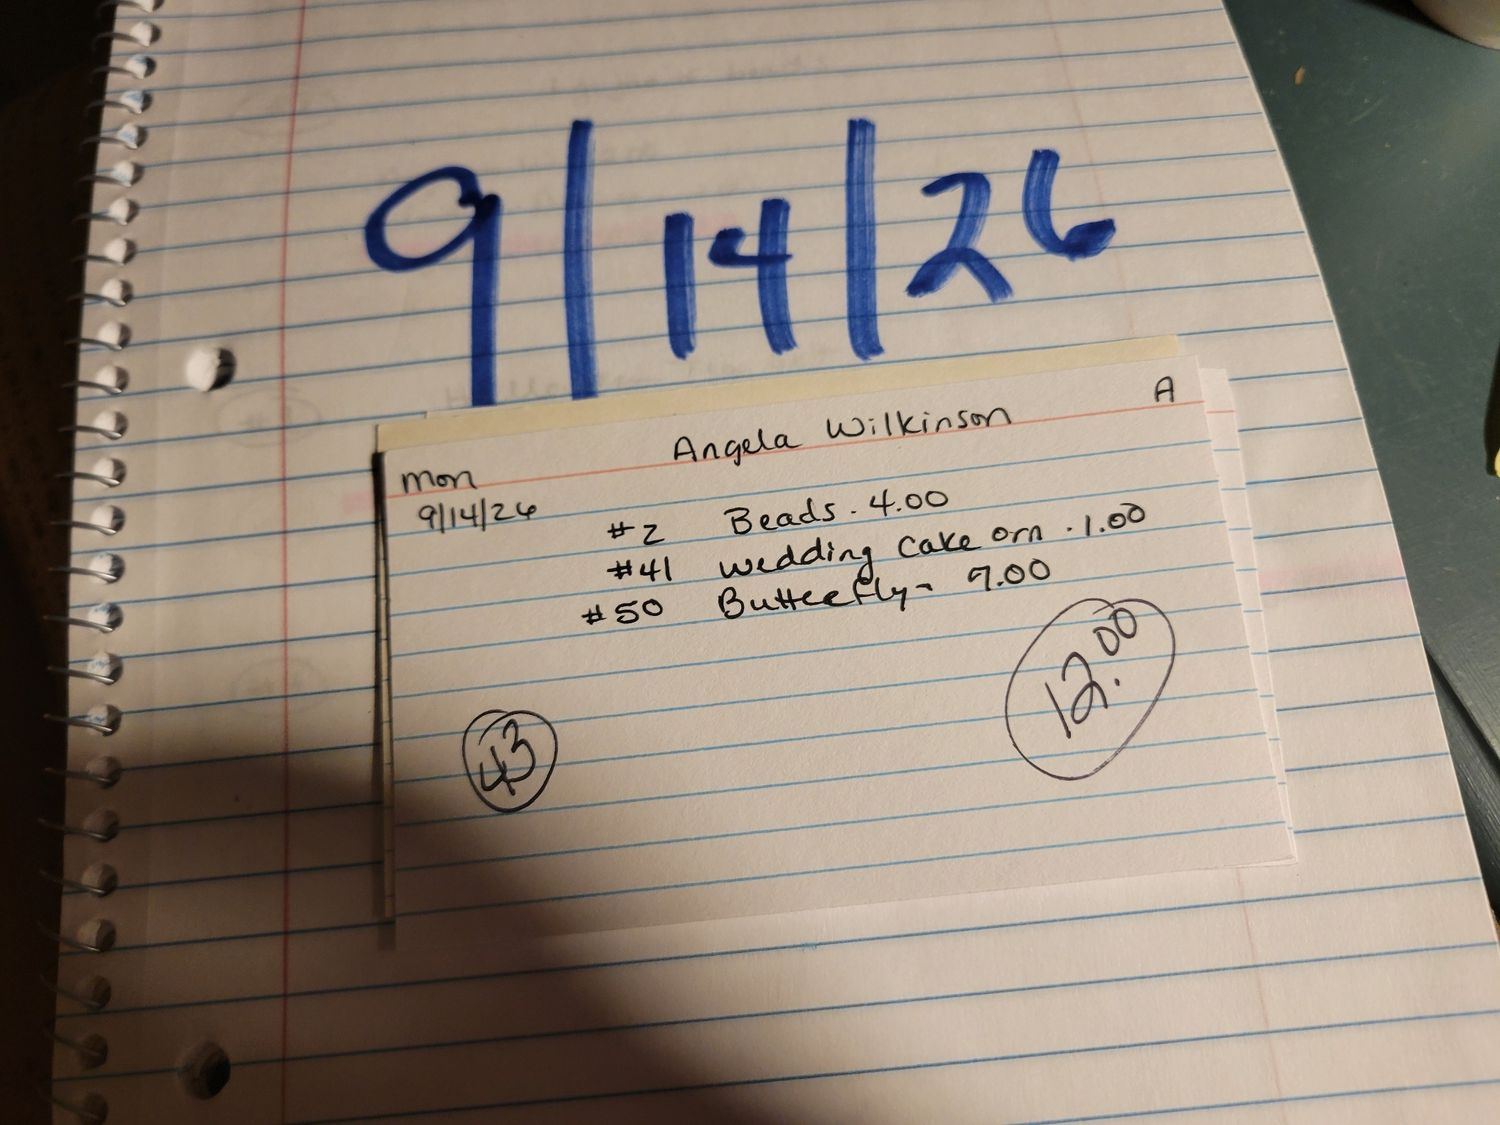 9/14/26
Angela Wilkinson A
Mon
9/14/26
#2 Beads. 4.00
#41 Wedding Cake orn. 1.00
#50 Butterfly- 7.00
43
12.00